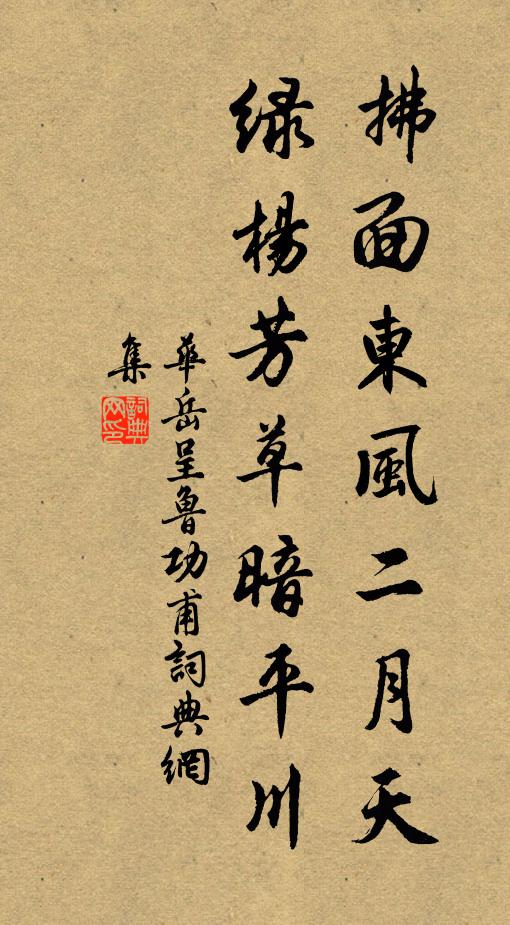 拂面東風二月天
緑楊芳草暗平川
華岳呈魯功甫詞典網
集
詞典
网印